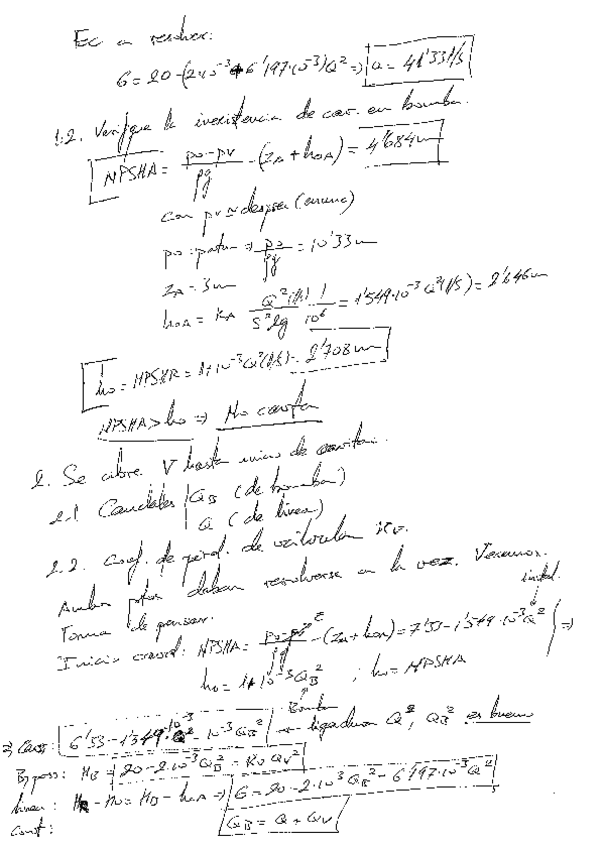 Ec a resolver:
6 = 20 - (2·10^-3 + 6'197·10^-3)Q^2 => Q = 41'33 l/s
1.2. Verifique la inexistencia de cav. en bomba.
NPSHA = (po-pv)/ρg - (zA + hoA) = 4'684 m
con pv ≃ desprec (enunc)
po = patm => po/ρg = 10'33 m
zA = 3 m
hoA = KA Q^2(l/s) 1 / S^2 2g 10^6 = 1'549·10^-3 Q^2(l/s) = 2'646 m
ho = NPSHR = 1+10^-3Q^2(l/s) = 2'708 m
NPSHA > ho => No cavita
2. Se abre V hasta inicio de cavitac.
2.1 Caudales QB (de bomba)
Q (de línea)
2.2. Coef. de perd. de valvula Kv.
Ambos ptos deben resolverse a la vez. Veamos.
Forma de pensar: instal.
Inicio cavid: NPSHA = (po-pv)/ρg - (ZA + hoA) = 7'33 - 1'549·10^-3 Q^2 =>
ho = 1+10^-3 QB^2 ; ho = NPSHA
Bomba
=> Cavit: 6'33 - 1'549·10^-3 Q^2 = 10^-3 QB^2 ← ligadura Q^2, QB^2 es bueno
Bypass: HB = 20 - 2·10^-3 QB^2 = Kv Qv^2
línea: - Ho = HB - => 6 = 20 - 2·10^-3 QB^2 - 6'197·10^-3 Q^2
Cont: QB = Q + Qv